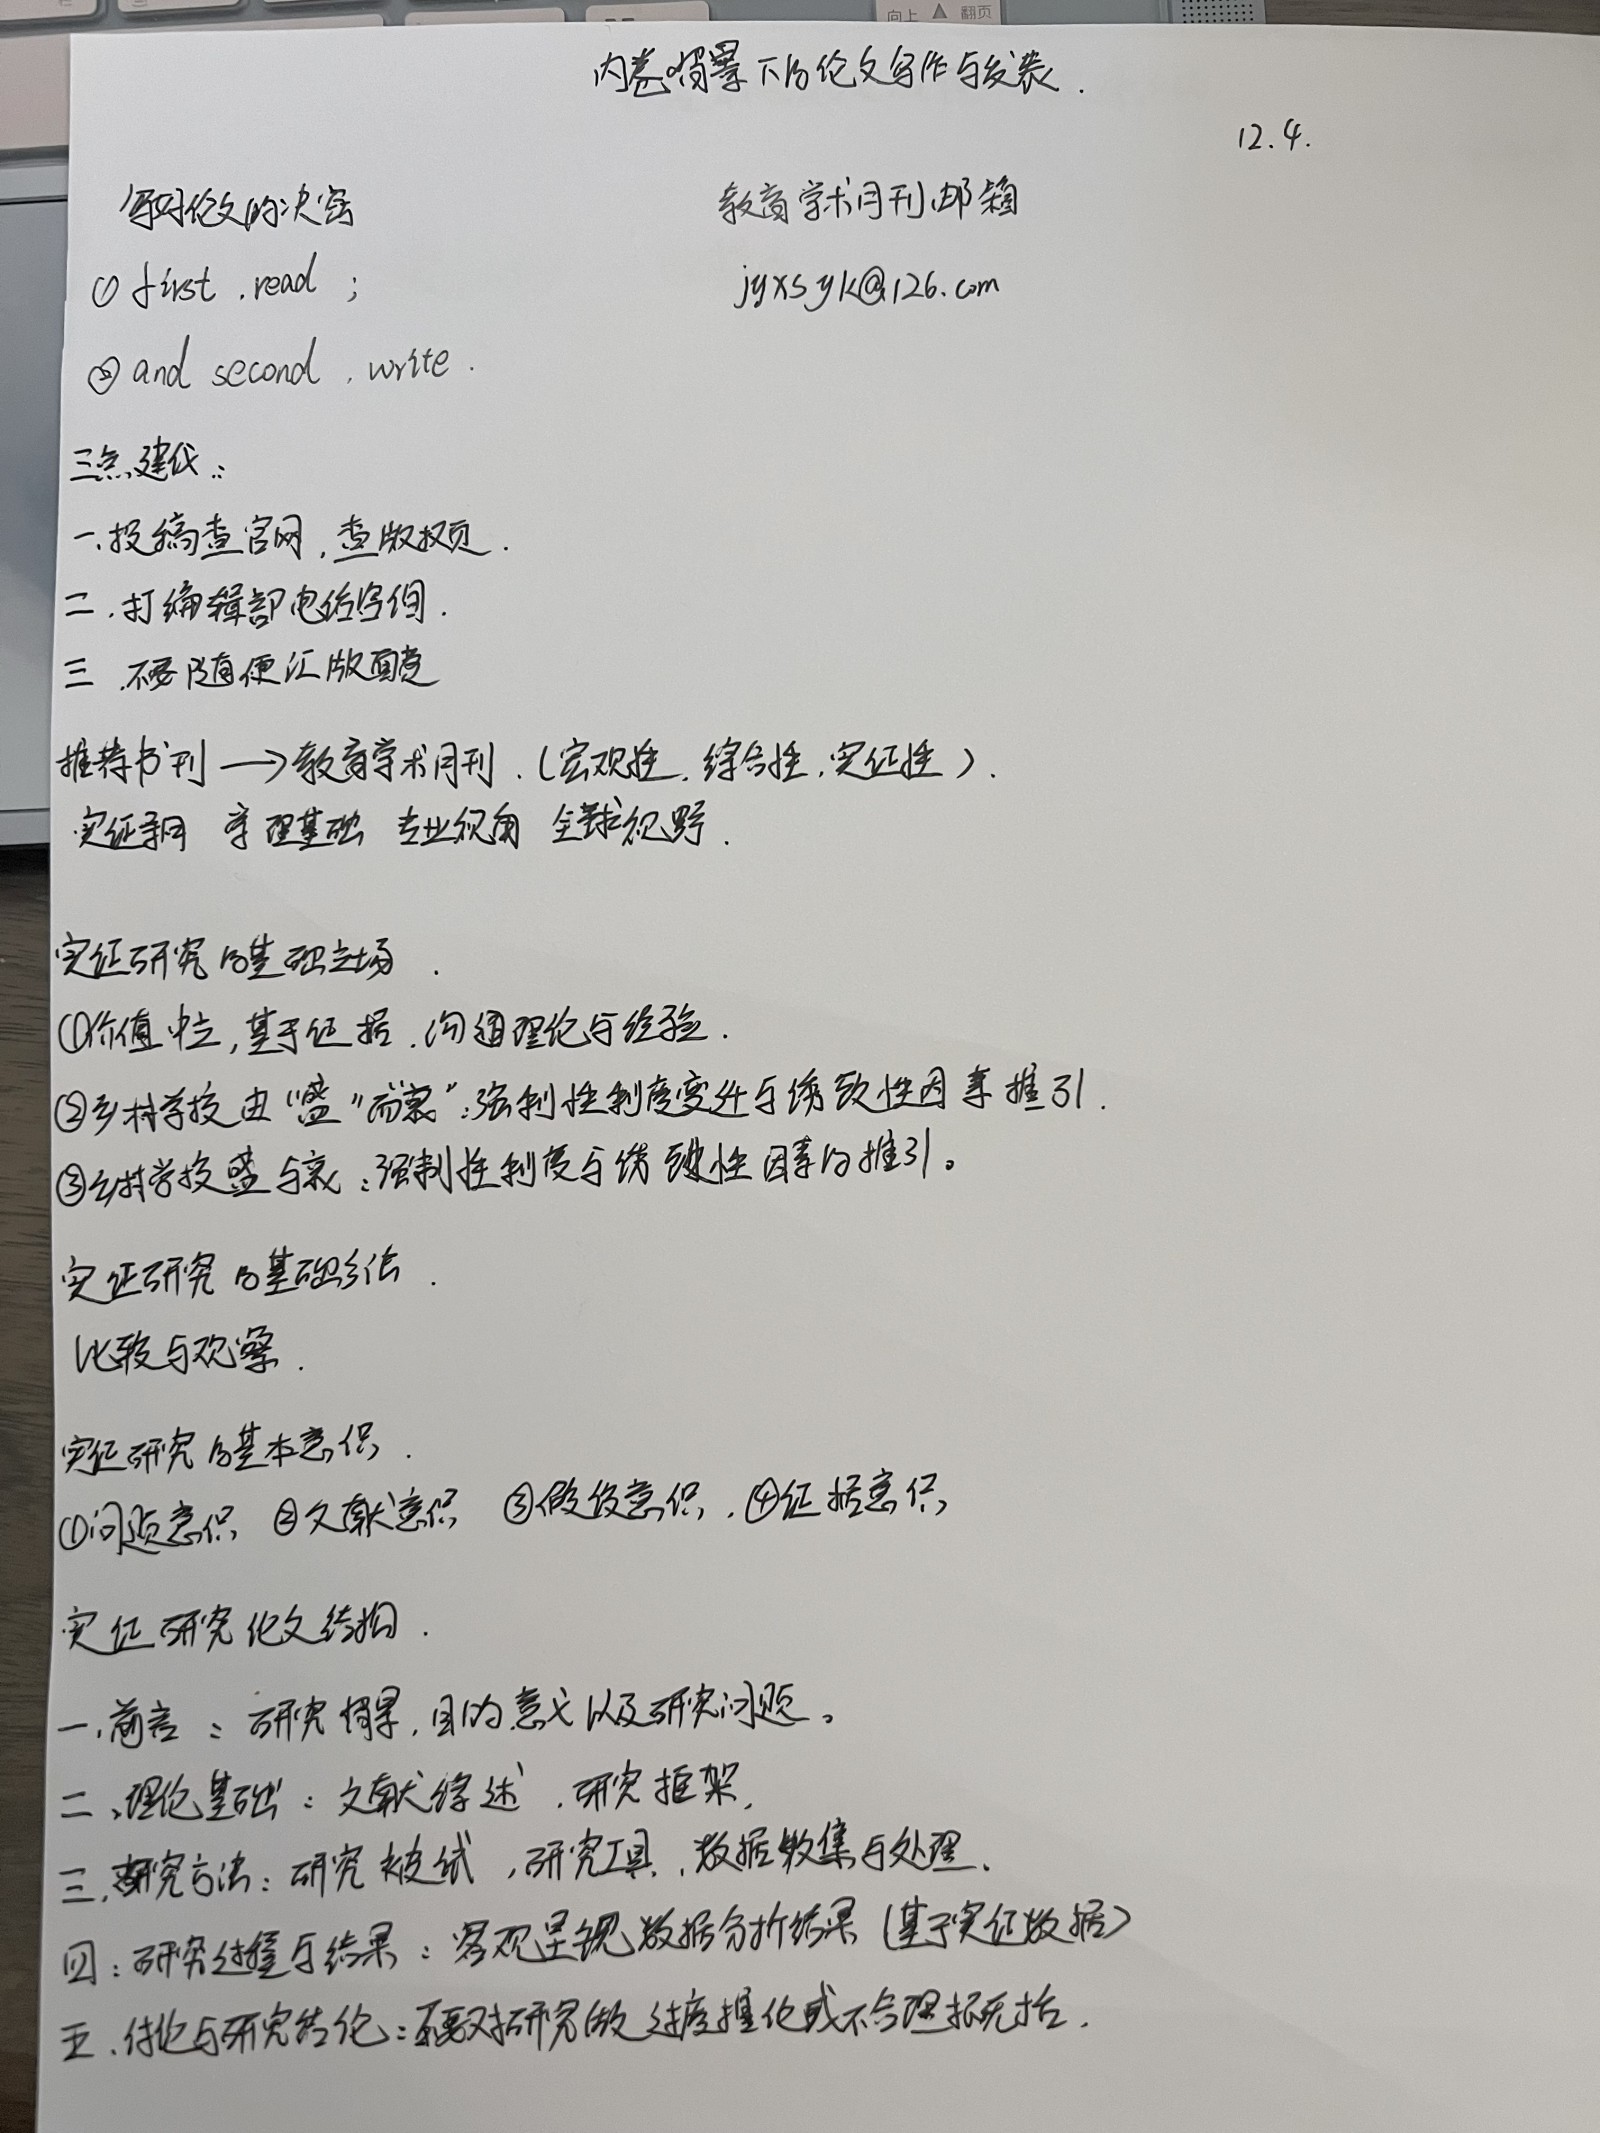 向上 翻页
内卷背景下的论文写作与发表.
12.4.
写好论文的决窍
教育学术月刊邮箱
① first, read ;
jyxsyk@126.com
② and second, write.
三点建议:
一.投稿查官网,查版权页.
二.打编辑部电话咨询.
三.不要随便汇版面费
推荐书刊→教育学术月刊.(宏观性,综合性,实证性).
实证 学理基础 专业视角 全球视野.
实证研究的基础立场.
①价值中立,基于证据,沟通理论与经验.
②乡村学校由“盛”而“衰”:强制性制度变迁与诱致性因素推引.
③乡村学校盛与衰:强制性制度与诱致性因素的推引。
实证研究的基础方法.
比较与观察.
实证研究的基本意识.
①问题意识 ②文献意识 ③假设意识.④证据意识
实证研究论文结构.
一.前言:研究背景,目的意义以及研究问题。
二、理论基础:文献综述,研究框架,
三.研究方法:研究被试,研究工具,数据收集与处理.
四:研究过程与结果:客观呈现数据分析结果(基于实证数据)
五.讨论与研究结论:不要对研究做过度推论或不合理概括.